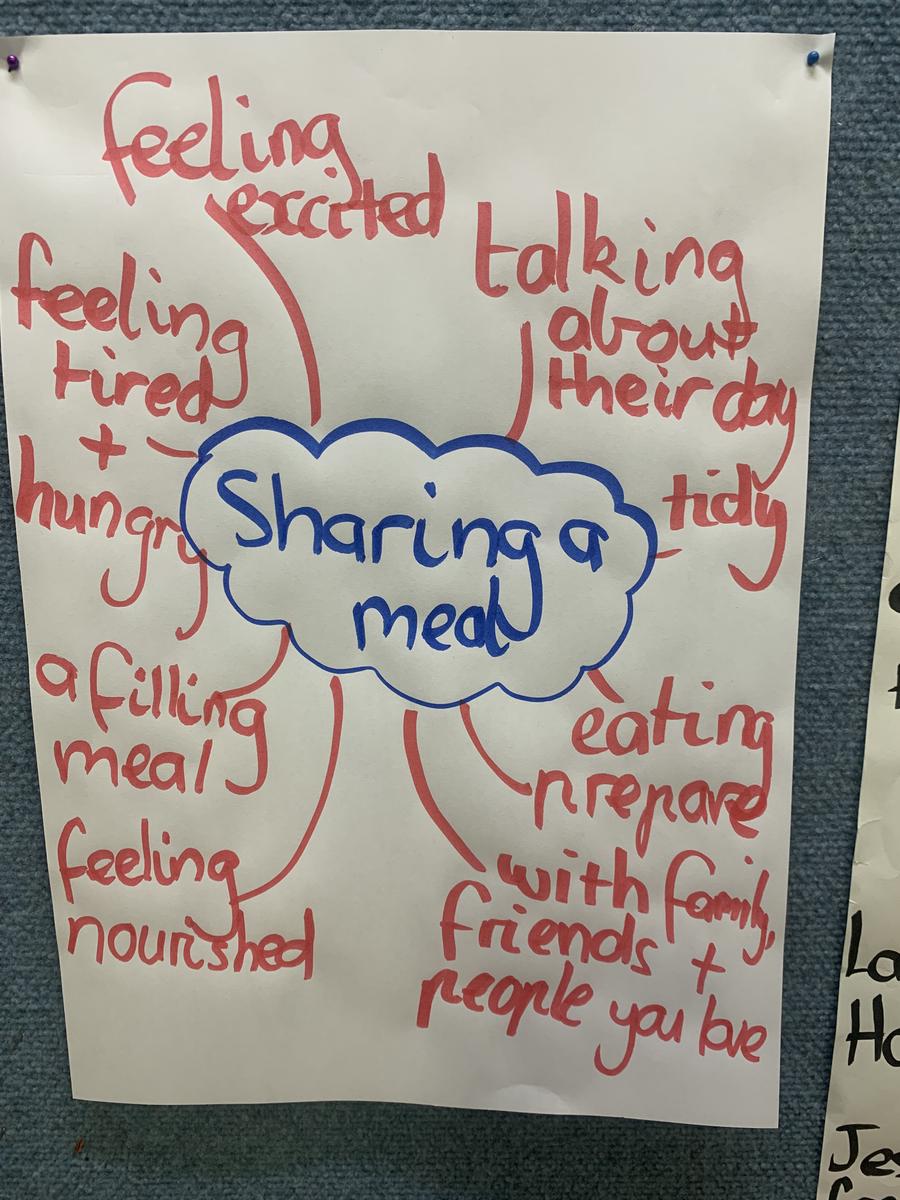 feeling
excited
talking
about
their day
feeling
tired
+
hungry
tidy
Sharing a
meal
a filling
meal
eating
prepare
feeling
nourished
with family,
friends +
people you love
La
Ho
Je